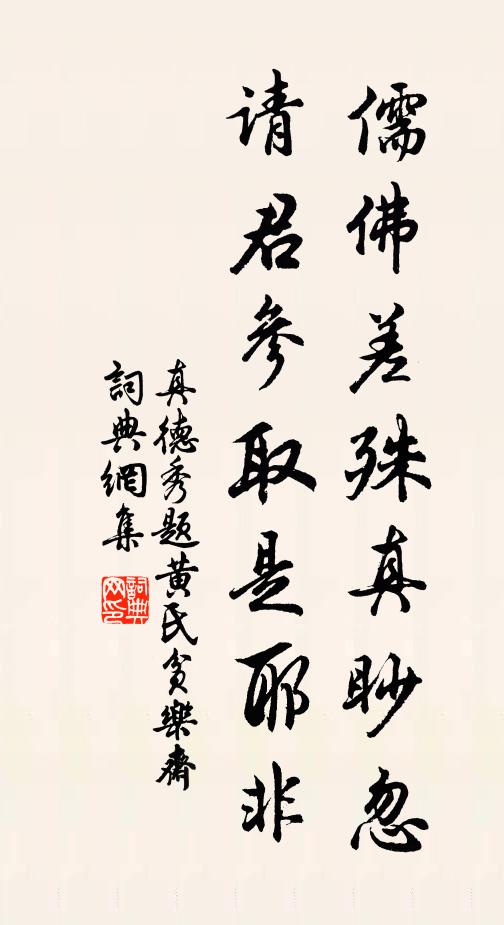 儒佛差殊真眇忽
请君参取是耶非
真德秀题黄氏贫樂齋
詞典網集
詞典网印